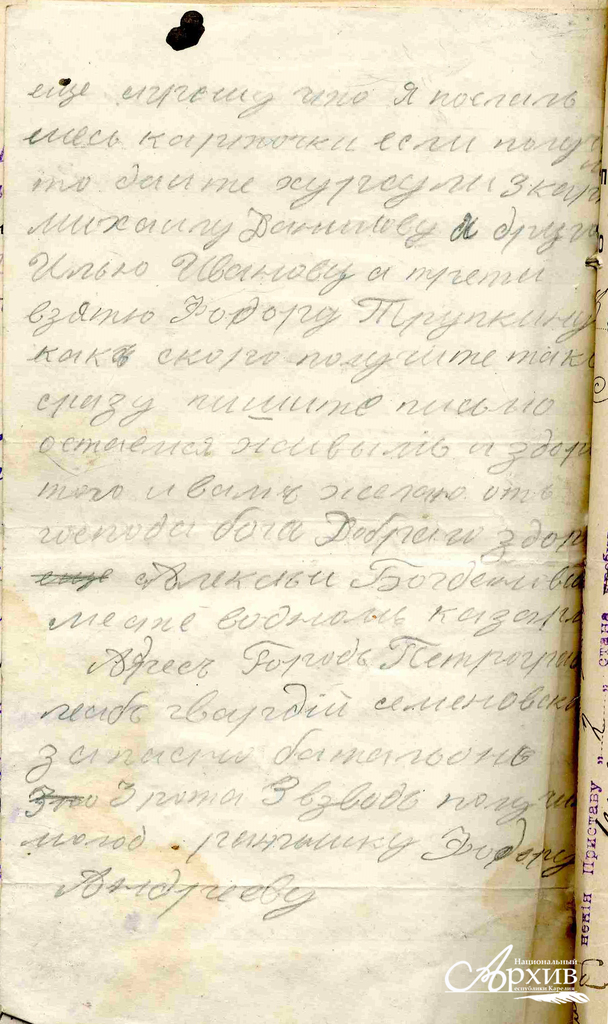 еще спрошу что я послалъ
шесь карточки если полу
то дайте 3 кар
михаилу Данилову а друго
Илью Иванову а трети
взятю Ѳодору Трупкину
какъ скоро получите тако
сразу пишите письмо
остаемся живымъ и здоро
того и вамъ желаю отъ
господа бога Добраго здор
еще Алексѣи Богдановъ
месте водномъ казарм
Адресъ Городъ Петроград
леибъ гвардій семеновско
запасно батальонъ
3 рота 3 взводъ получи
молод Ѳодору
Андрееву
нкія Приставу „ стана
Национальный
Архив
Республики Карелия